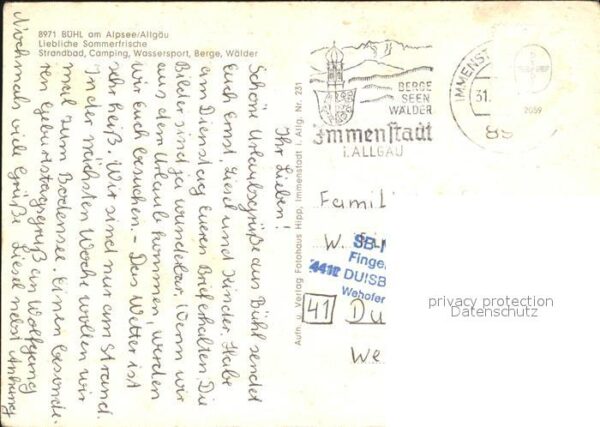 8971 BÜHL am Alpsee/Allgäu
Liebliche Sommerfrische
Strandbad, Camping, Wassersport, Berge, Wälder
Ihr Lieben!
Schöne Urlaubsgrüße aus Bühl sendet
Euch Ernst, Liesel und Kinder. Habe
am Dienstag Euren Brief erhalten. Die
Bilder sind ja wunderbar. Wenn wir
aus dem Urlaub kommen, werden
wir Euch besuchen. - Das Wetter ist
sehr heiß. Wir sind nur am Strand.
In der nächsten Woche wollen wir
mal zum Bodensee. Einen besonde-
ren Geburtstagsgruß an Wolfgang
Nochmals viele Grüße Liesel nebst Anhang
Aufn. u. Verlag Fotohaus Hipp, Immenstadt i. Allg. Nr. 231
BERGE
SEEN
WÄLDER
Immenstadt
i. ALLGÄU
IMMENST
31.
89
2059
Famil
W.
SB-
Finge
4412 DUISB
Wehofer
41 Du
We
privacy protection
Datenschutz